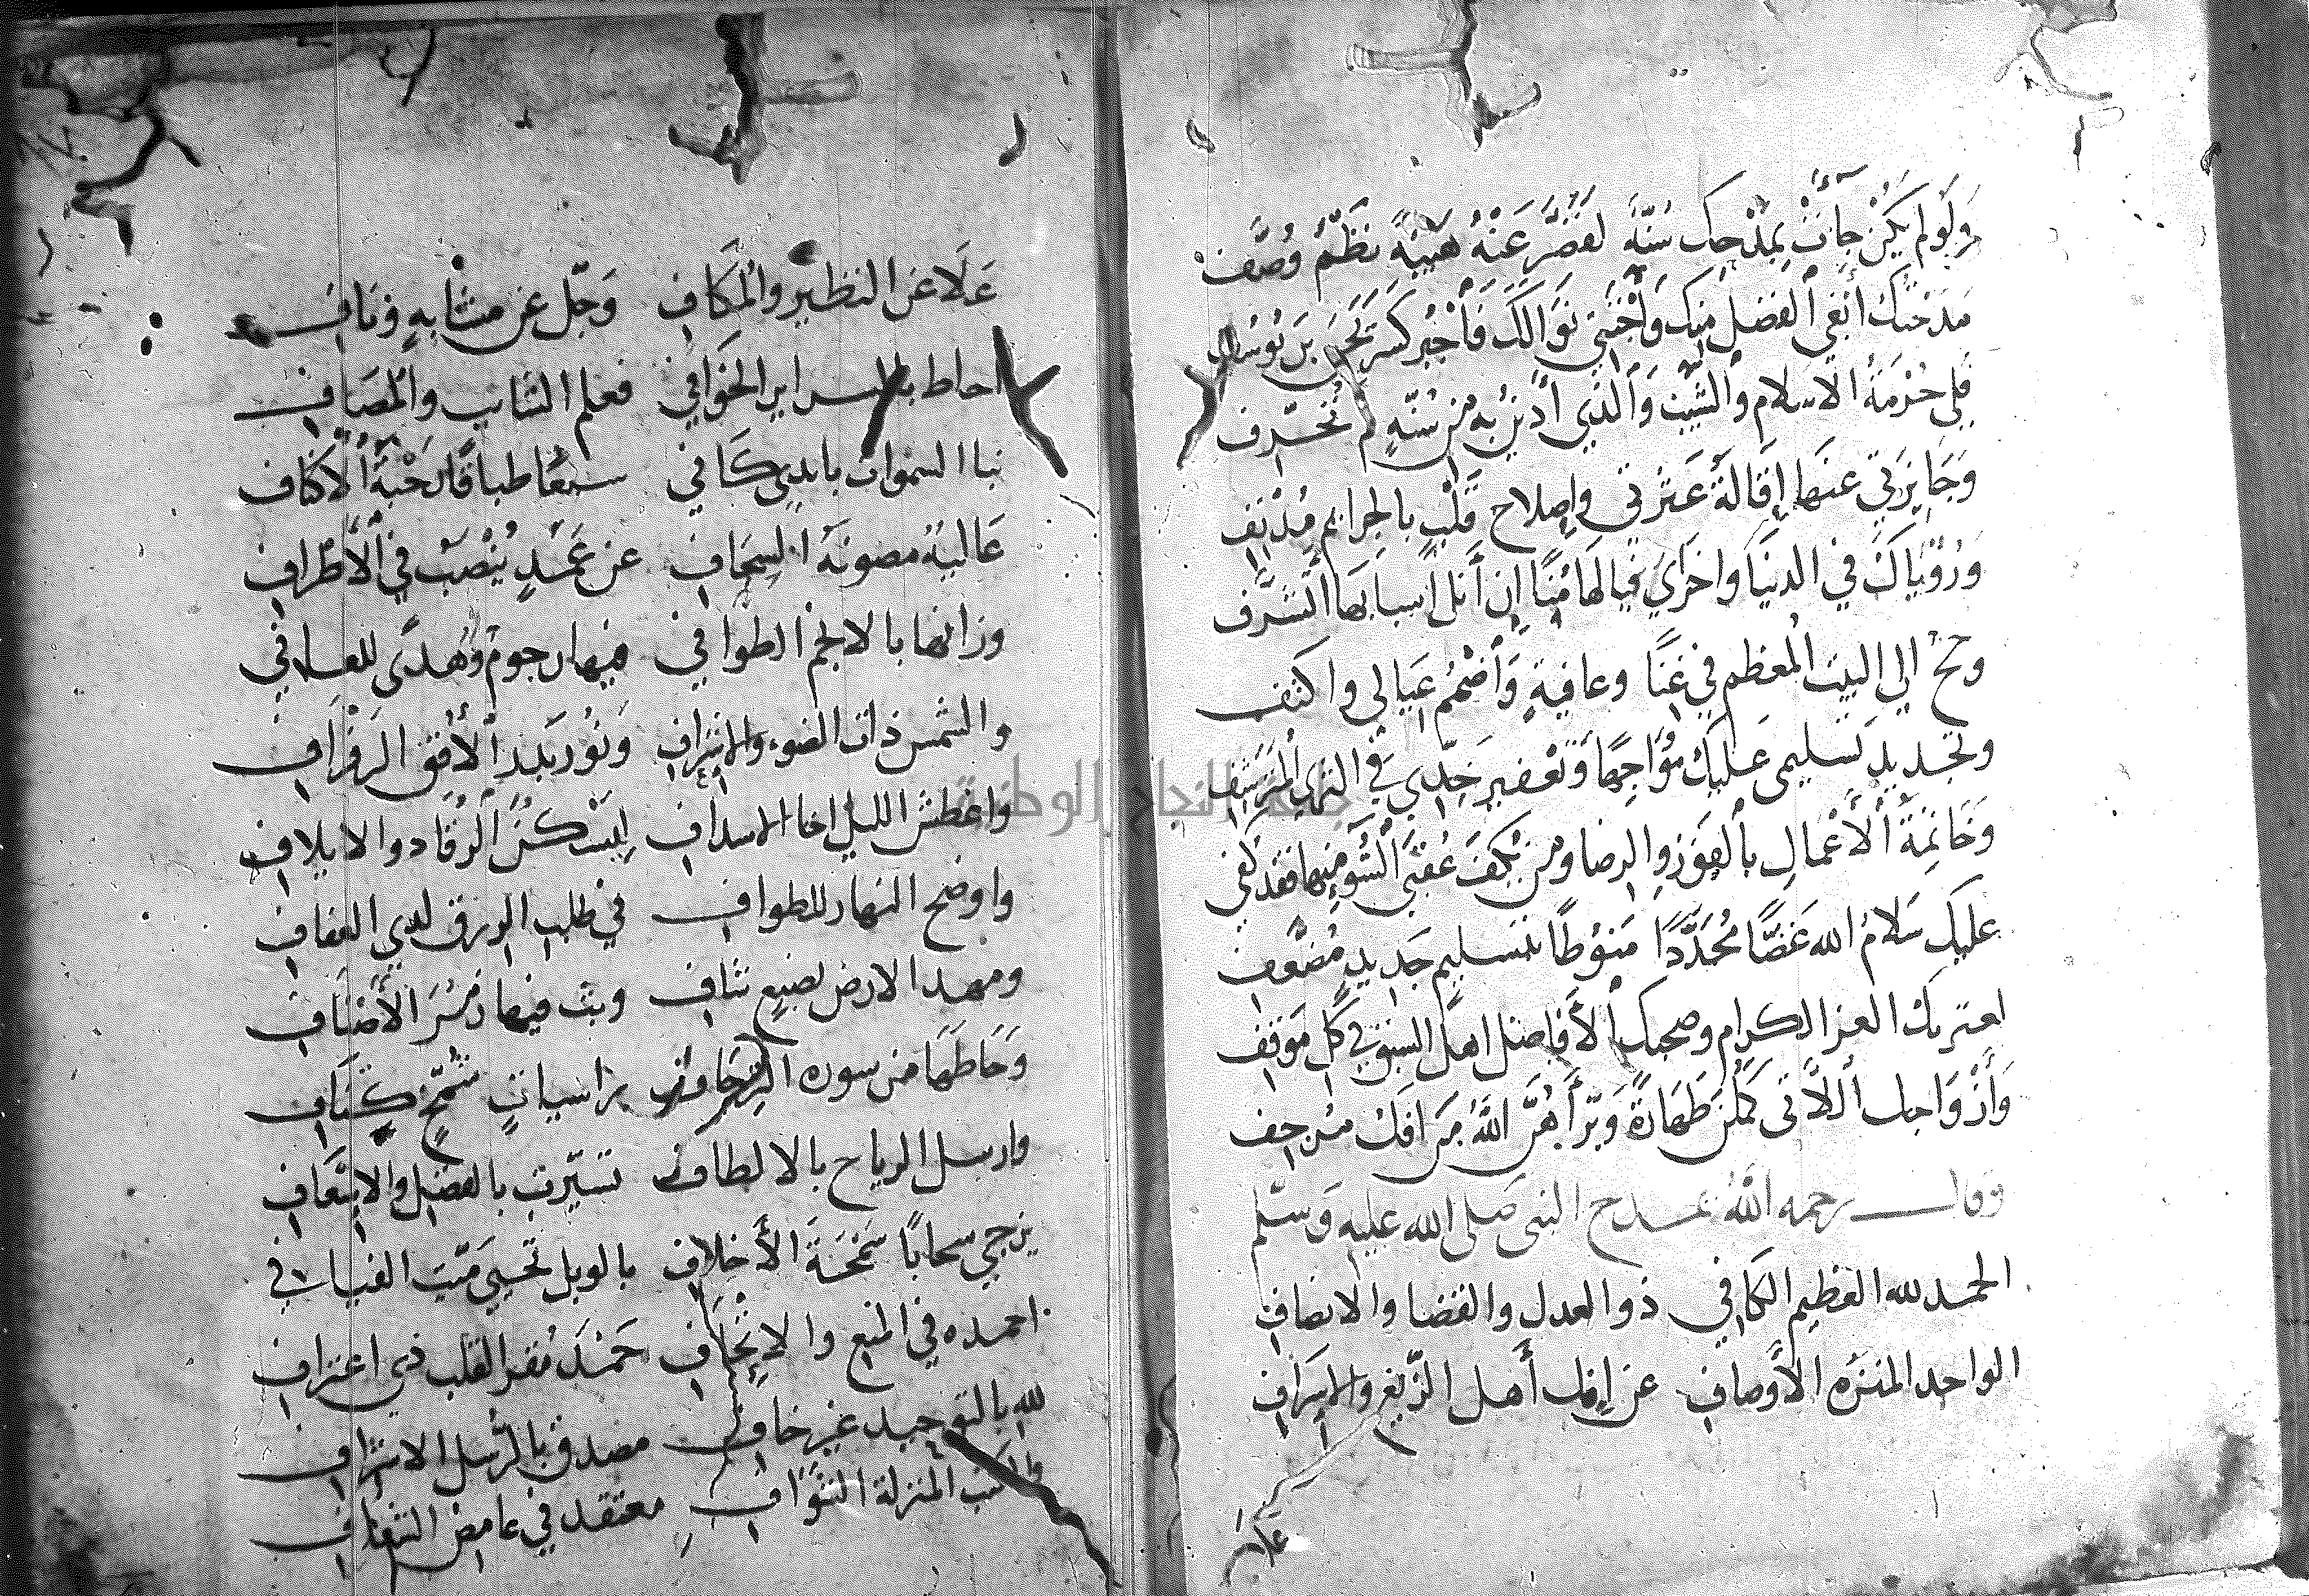 وَلَو لم يكن جَاءَتْ بِمَدْحِكَ سُنَّة لَقَصَّرَ عَنْهُ هَيْبَةً نَظْمُ وُصَّفِ
مَدَحْتُكَ أَبْغِي الفضل مِنكَ وَأَجْتَنِي نَوَالَكَ فَاجْبُر كَسْرَ يحيى بن يُوسُفِ
فَلِي حُرْمَةُ الاسلام وَالشَّيْبِ وَالَّذِي أَدِينُ بِهِ مِن سُنَّةٍ لم تُحَرَّفِ
وَجَايِزَتي عنها إِقَالَةُ عَثرتي وإصلاح قَلْبٍ بالجرايم مُدْنَفِ
وَرُؤْيَاكَ في الدنيَا واخرَايَ فيالها مُنًا إن أَنَل اسبابها أَتَشَرَّفِ
وَحَجٌّ الي البيت المعظم في غِنًا وعافيةٍ وَأَضْمُمْ عِيَالي واكنفِ
وتجديد تسليمي عليك مُوَاجِهًا وَتَعْفيرِ خَدِّي في الثري المترشفِ
وَخَاتِمَةُ الأَعْمَالِ بالفَوْزِ والرضا ومن يُكْفَ عُقْبَي السُّوءِ منها فقد كُفي
عليك سَلامُ الله غَضًّا مُجَدَّدًا مَنوُطًا بتسليمٍ جَدِيدٍ مُضَعَّفِ
لعترتك الغر الكرام وصحبك الأَفاضل اهل السبق في كل مَوقفِ
وَأَزْوَاجك اللَّاتي كَمُلْنَ طَهَارَةً وَبَرَّأَهُنَّ اللَّهُ مِن إفك مُرجفِ
وقال رحمه اللَّهُ يمدح النبي صلى الله عليه وَسَلَّم
الحمد لله العظيم الكافي ذو العدل والقضا والانصافِ
الواحد المنزه الأَوصافِ عن إفك أَهل الزَّيغِ والاسرافِ
علا عن
عَلَا عَن النظير وَالمُكَافي وَجَلَّ عن مشابِهٍ وَنَافِ
احاط بالسراير الخَوَافي فعلم الشايب والمُصَافي
بنا السموات بايدٍ كَافي سبعًا طباقًا رَحْبَةَ الاكنافِ
عَاليةً مصونةَ السِّجَافِ عن عَمَدٍ يُنْصَبُ في الأَطْرافِ
وزانها بالانجم الطوافي فيها رجومٌ وَهُدًى للعافي
والشمس ذات الضوء والاشراقِ وَنُور بَدر الأُفق الرَفْرَافِ
واغطش الليل اخا الاسدافِ لِيَسْكُنَ الرُقَاد والايلافِ
واوضح النهار للطوافِ في طلب الرزق لدي العفافِ
ومهد الارض لصنع شافِ وبث فيها زُمَرَ الأَصْنَافِ
وَحَاطَهَا من سورة الرجافِ براسياتٍ شُمَّخٍ كِثَافِ
وارسل الرياح بالالطافِ تسيَّرت بالفضل والاسْعَافِ
يزجي سحابًا سَمْحَةَ الأَخلافِ بالوبل تحيي مَيِّت الفيافي
احمده في المنع والإِتْحَافِ حَمْدَ مُقر القلب ذي اعترافِ
لله بالتوحيد غير خافِ مصدق بالرُّسل الاشرافِ
والكتب المنزلة الشَّوَافي معتقد في غامض